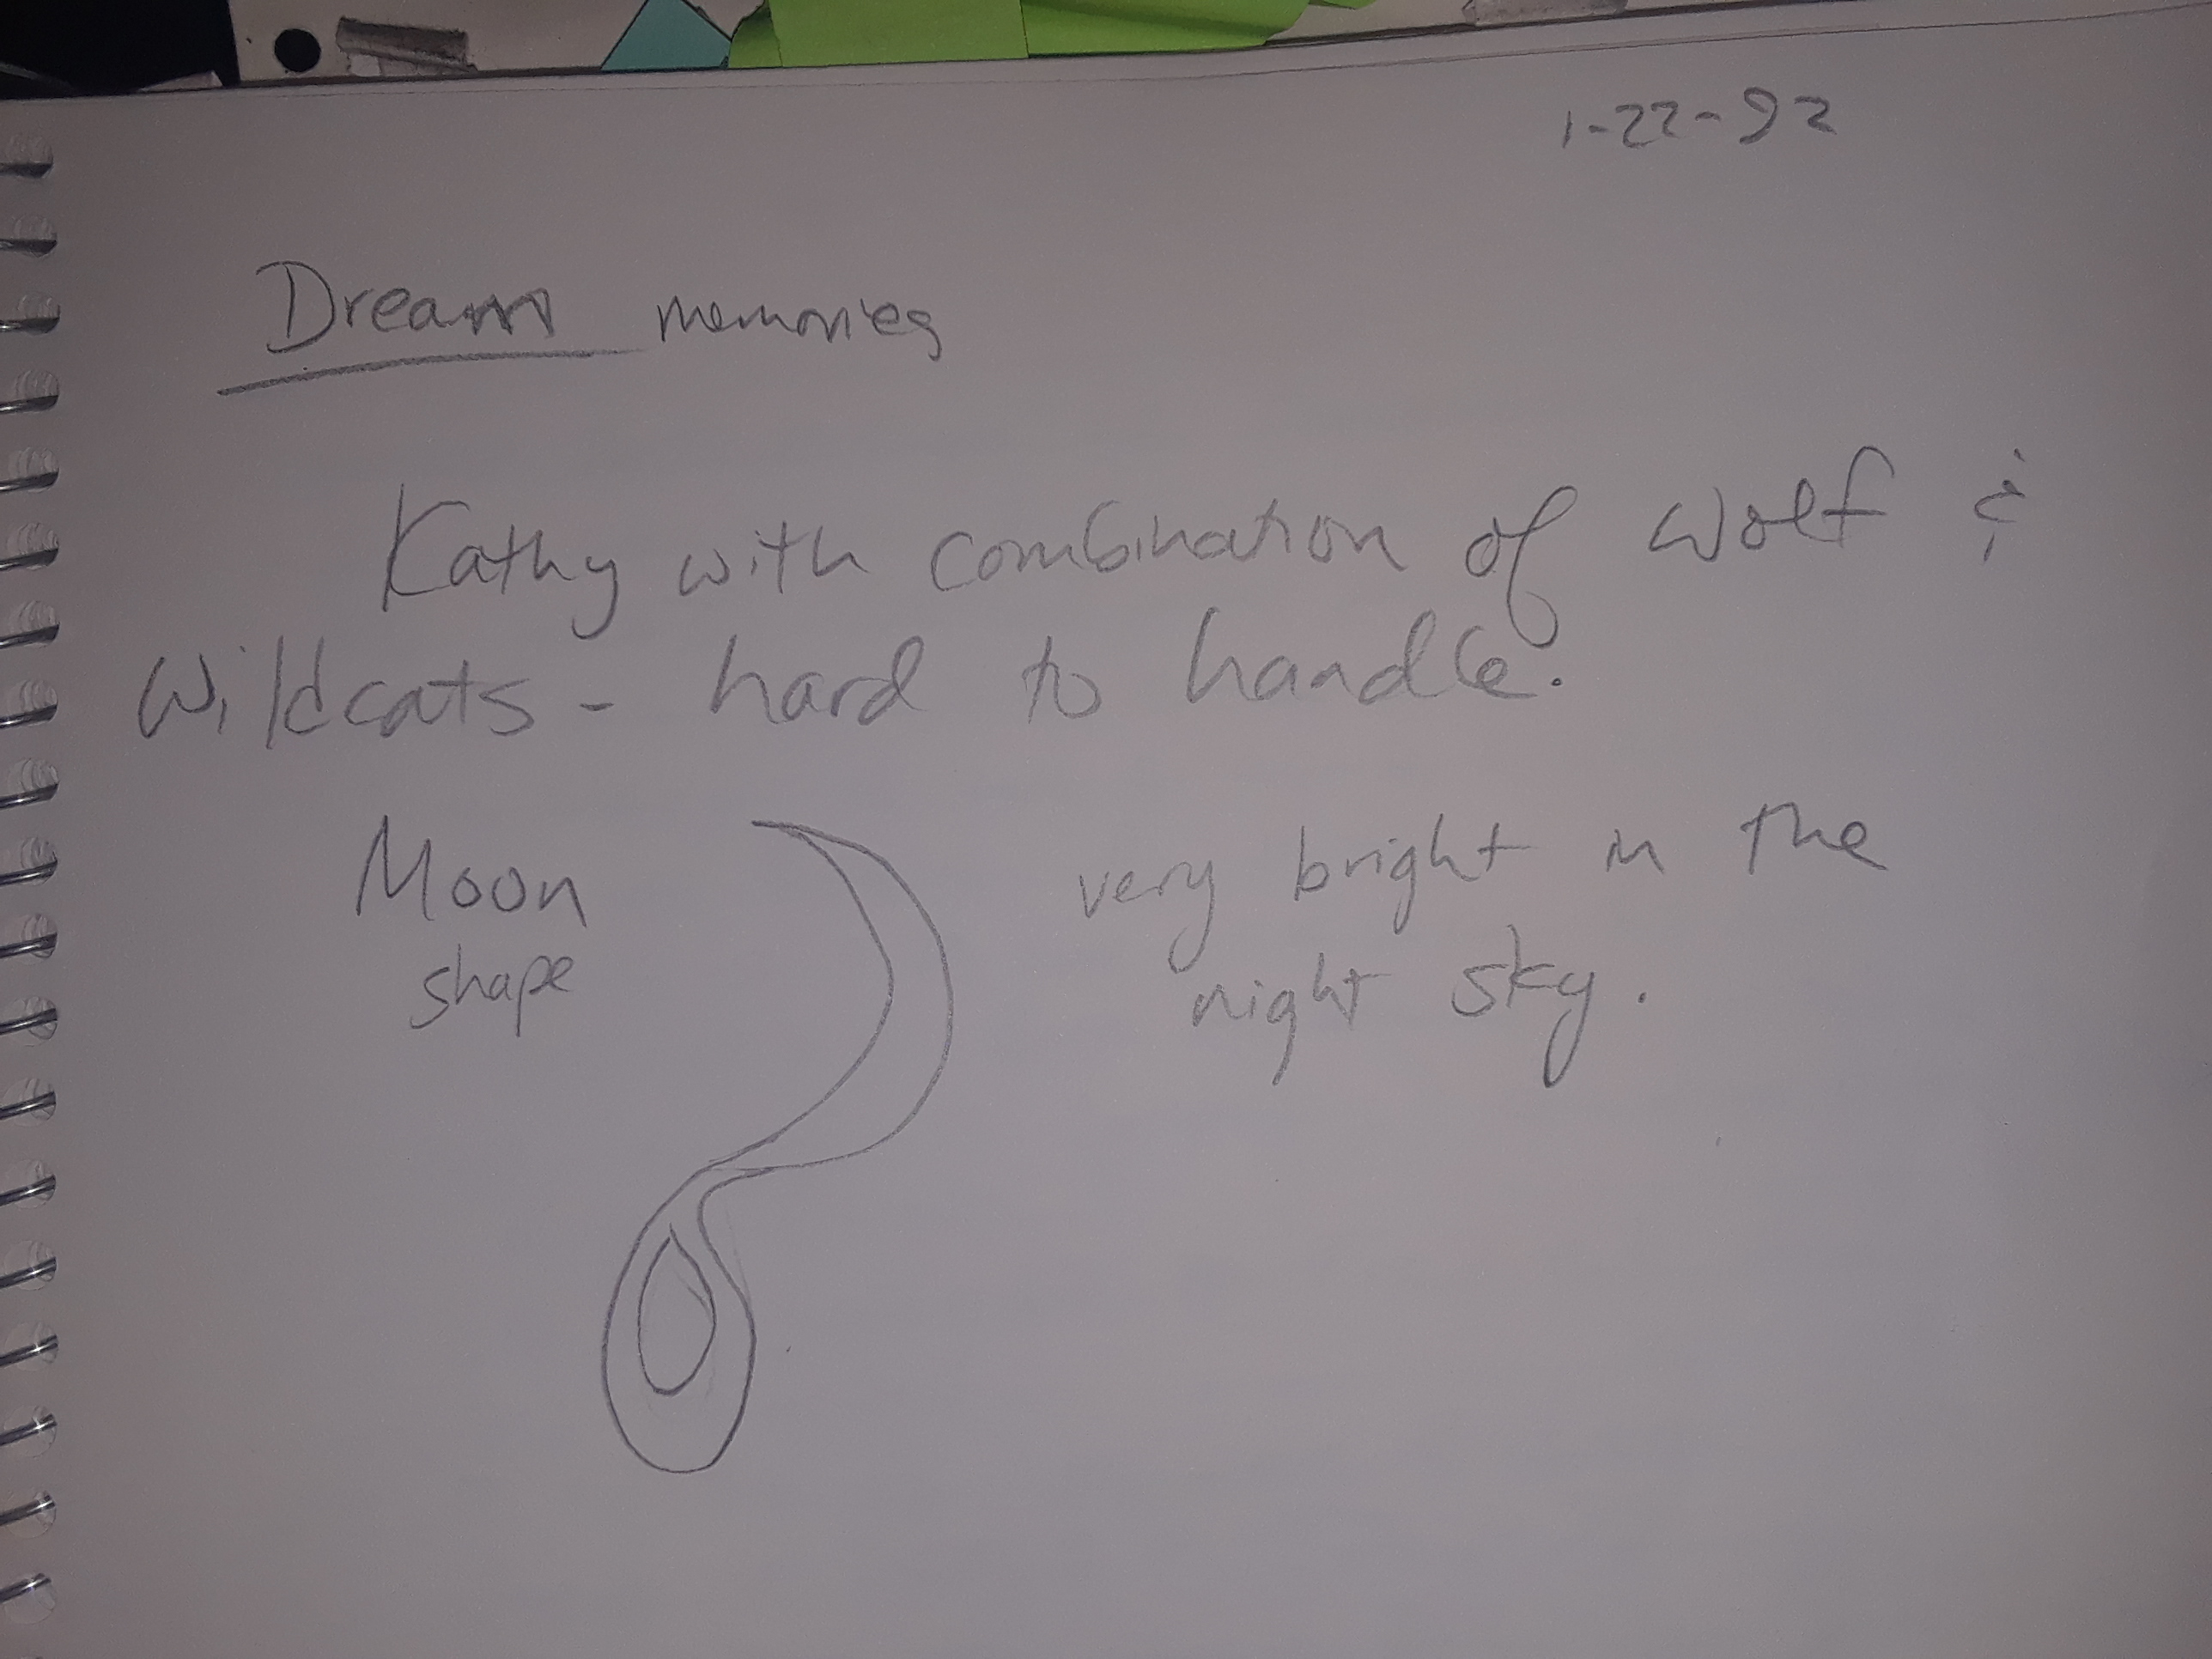 1-22-92
Dream memories
Kathy with combination of wolf &
Wildcats - hard to handle.
Moon
shape
very bright in the
night sky.